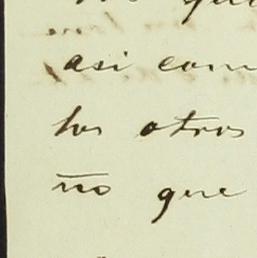 asi com
los otros
no que